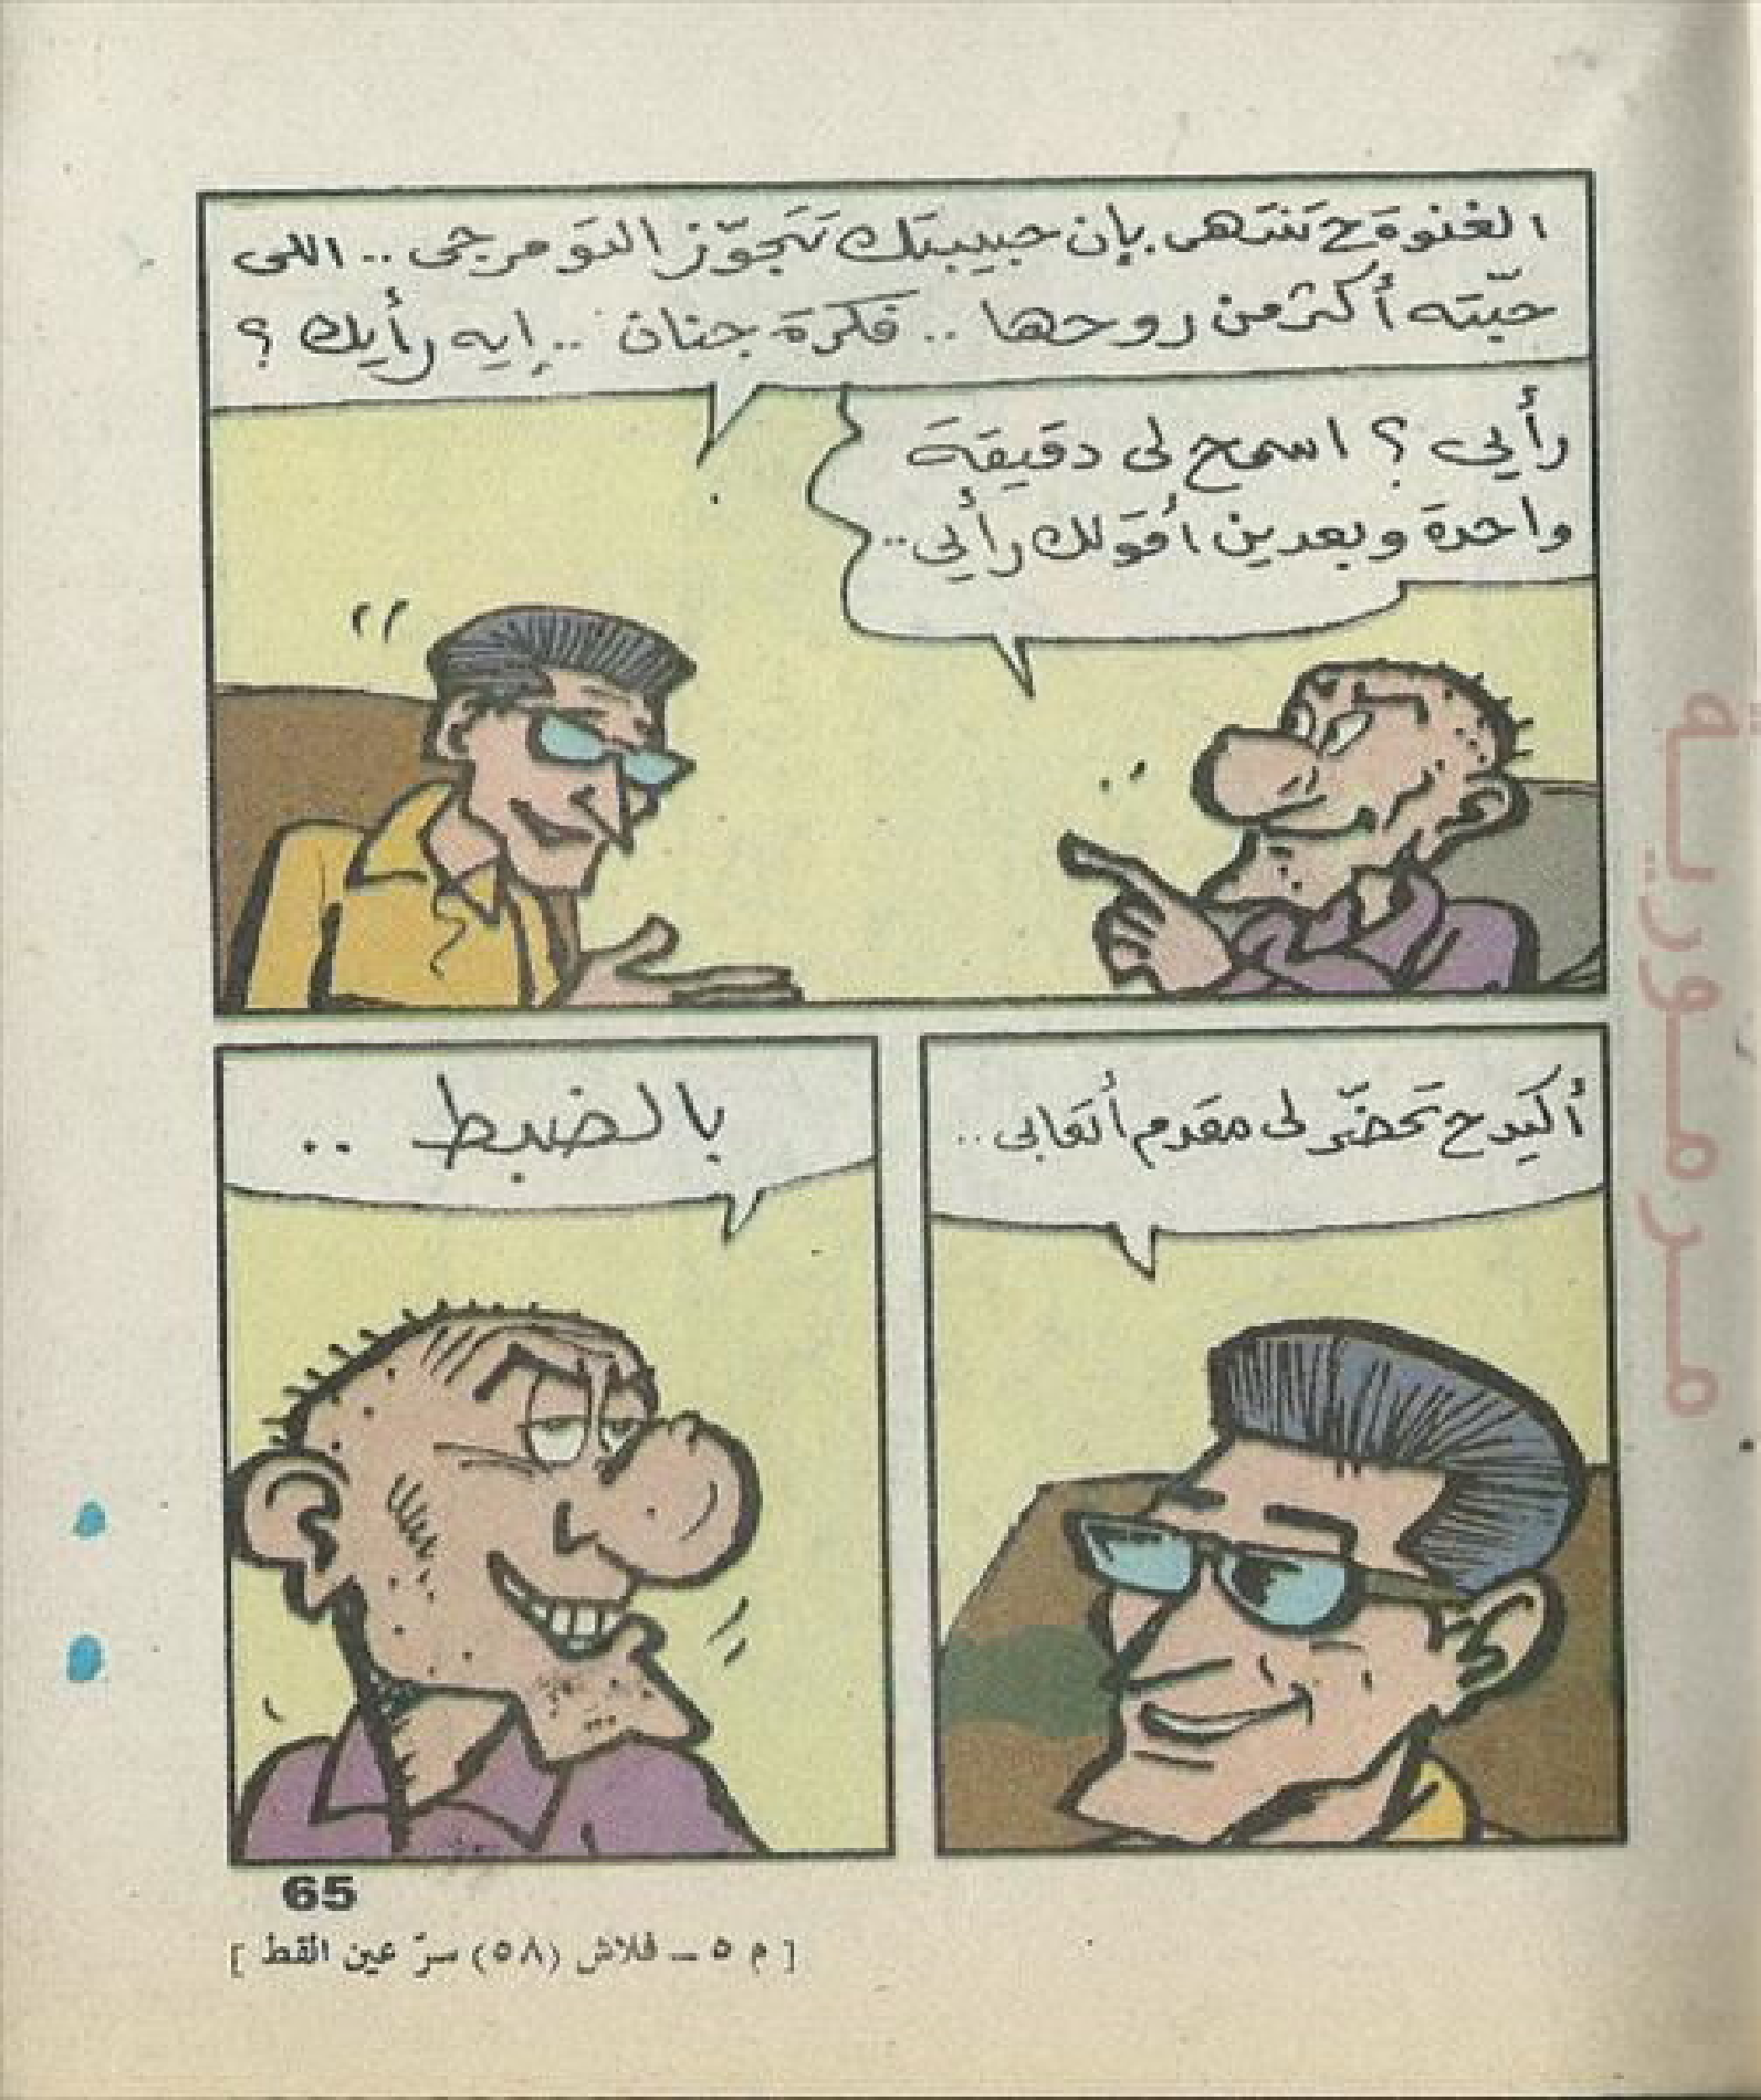 الغنوة ح تنتهى بإن حبيبتك تتجوّز التومرجى .. اللى
حبّته أكثر من روحها .. فكرة جنان .. إيه رأيك ؟
رأيى ؟ اسمح لى دقيقة
واحدة وبعدين أقولك رأيى ..
أكيد ح تحضّر لى مقدم أتعابى ..
بالضبط ..
65
[ م ٥ ــ فلاش (٥٨) سرّ عين القط ]